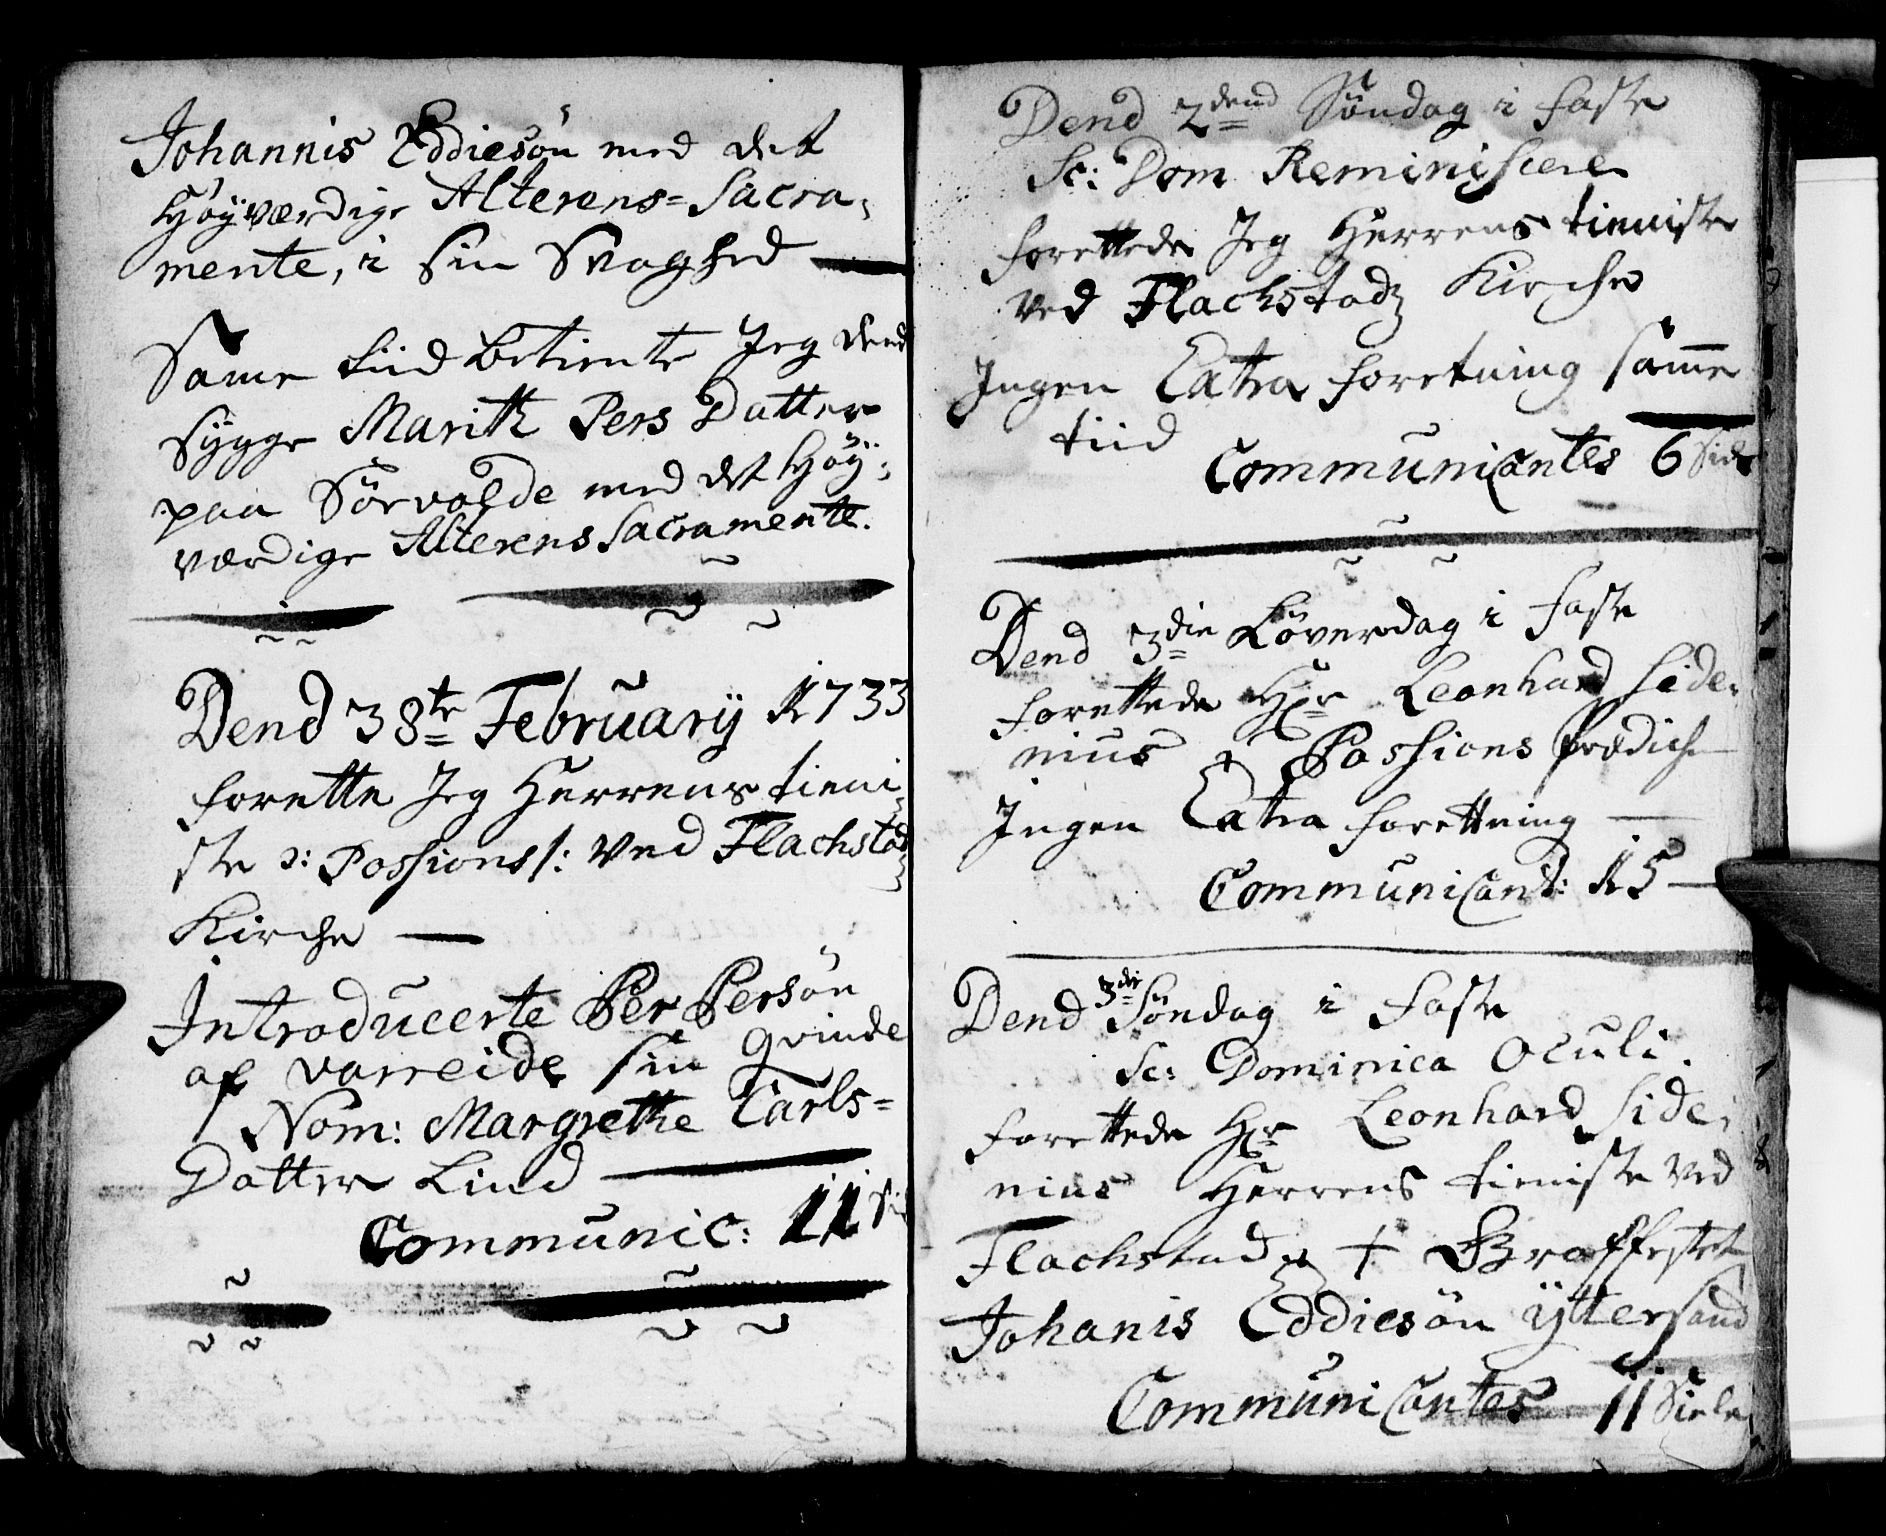 Johannis Eddiesøn med det
Høyværdige Alterens=Sacra,
mente, i sin Svaghed
Same tiid betiente Jeg dend
Sygge Marith Pers Datter
paa Sörvolde med det Høy:
værdige Alterens Sacramente.
Dend 38te February 1733
forette Jeg Herrens tieni,
ste ɔ: Passions/: ved Flachstadz
Kirche
Introducerte Per Persön
af varreide sin qvinde
Nom: Margrethe Carls=
Datter Lind
Communic: 11
Dend 2dend Söndag i faste
Sc: Dom Reminiscere
forettede Jeg Herrens tieniste
ved Flachstadz Kirche
Ingen Extra foretning samme
tiid
Communicantes 6
Dend 3die Löverdag i faste
forettede Hr Leonhard Side,
nius Passions prædich
Ingen Extra forettning
Communicant: 15
Dend 3die Söndag i faste
Sc: Dominica Oculi.
forettede Hr Leonhard Side,
nius Herrens tieniste ved
Flachstad + Graffestet
Johanis Eddiesön ÿttersand
Communicantes 11 Siele